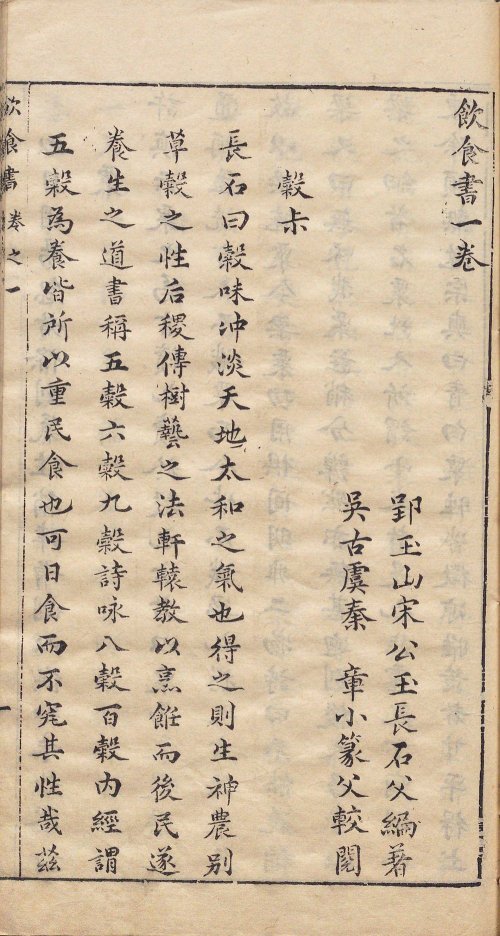 飲食書一卷
郢玉山宋公玉長石父編著
吳古虞秦 章小篆父較閱
穀尗
長石曰穀味沖淡天地太和之氣也得之則生神農别
草穀之性后稷傳樹藝之法軒轅教以烹飪而後民遂
養生之道書稱五穀六穀九穀詩咏八穀百穀内經謂
五穀為養皆所以重民食也可日食而不究其性哉兹
飲食書 卷之一 一